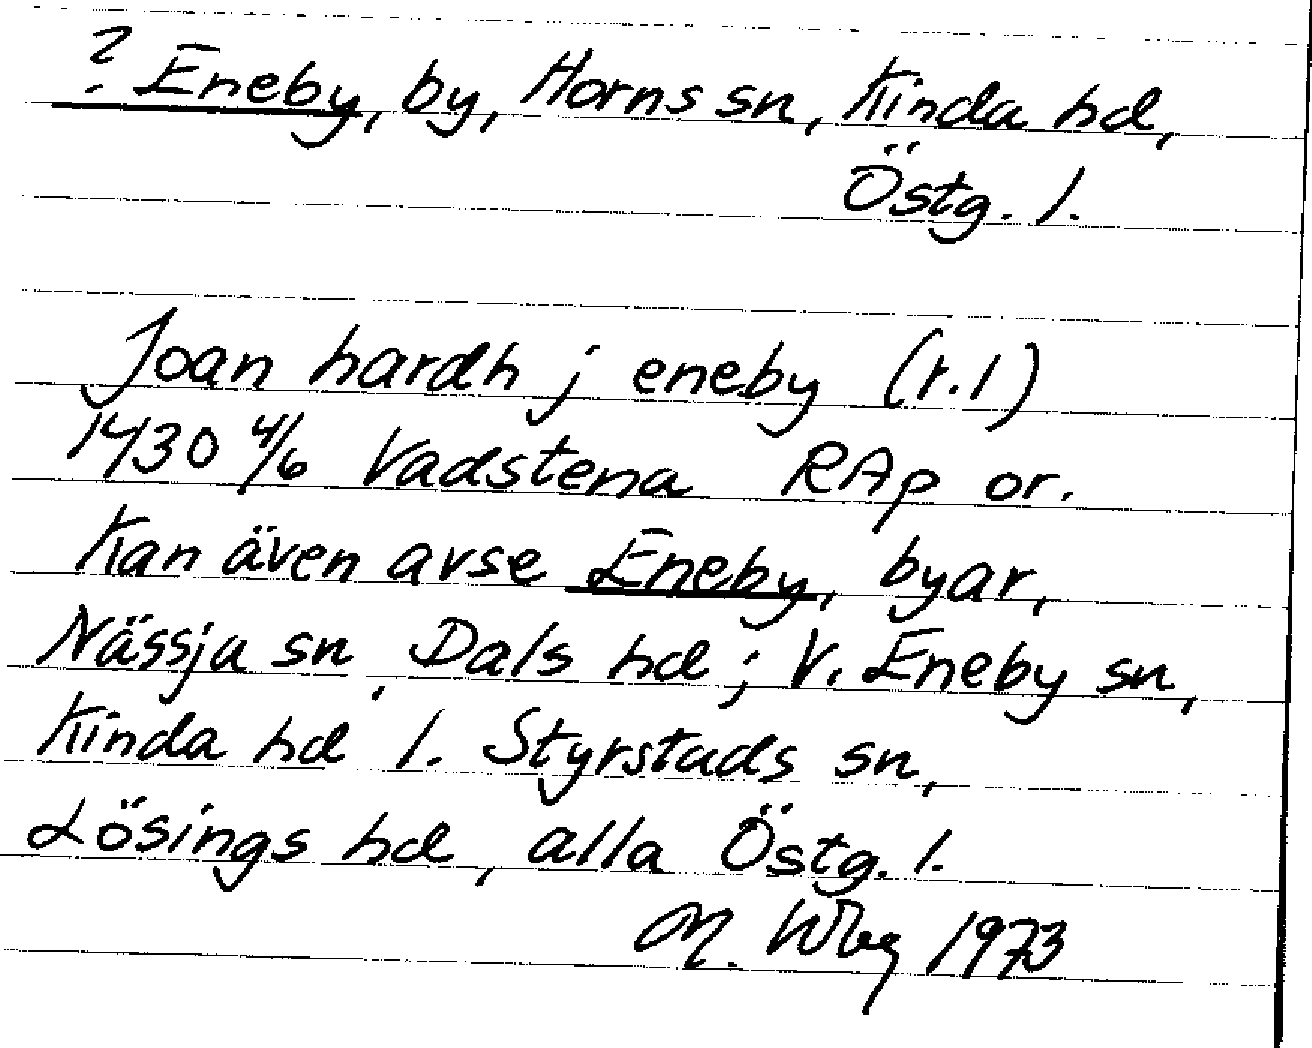 ? Eneby, by, Horns sn, Kinda hd,
Östg. l.
Joan hardh j eneby (r. 1)
1430 4/6 Vadstena RAp or.
Kan även avse Eneby, byar,
Nässja sn, Dals hd; V. Eneby sn,
Kinda hd l. Styrstads sn,
Lösings hd, alla Östg. l.
M. Wbg 1973